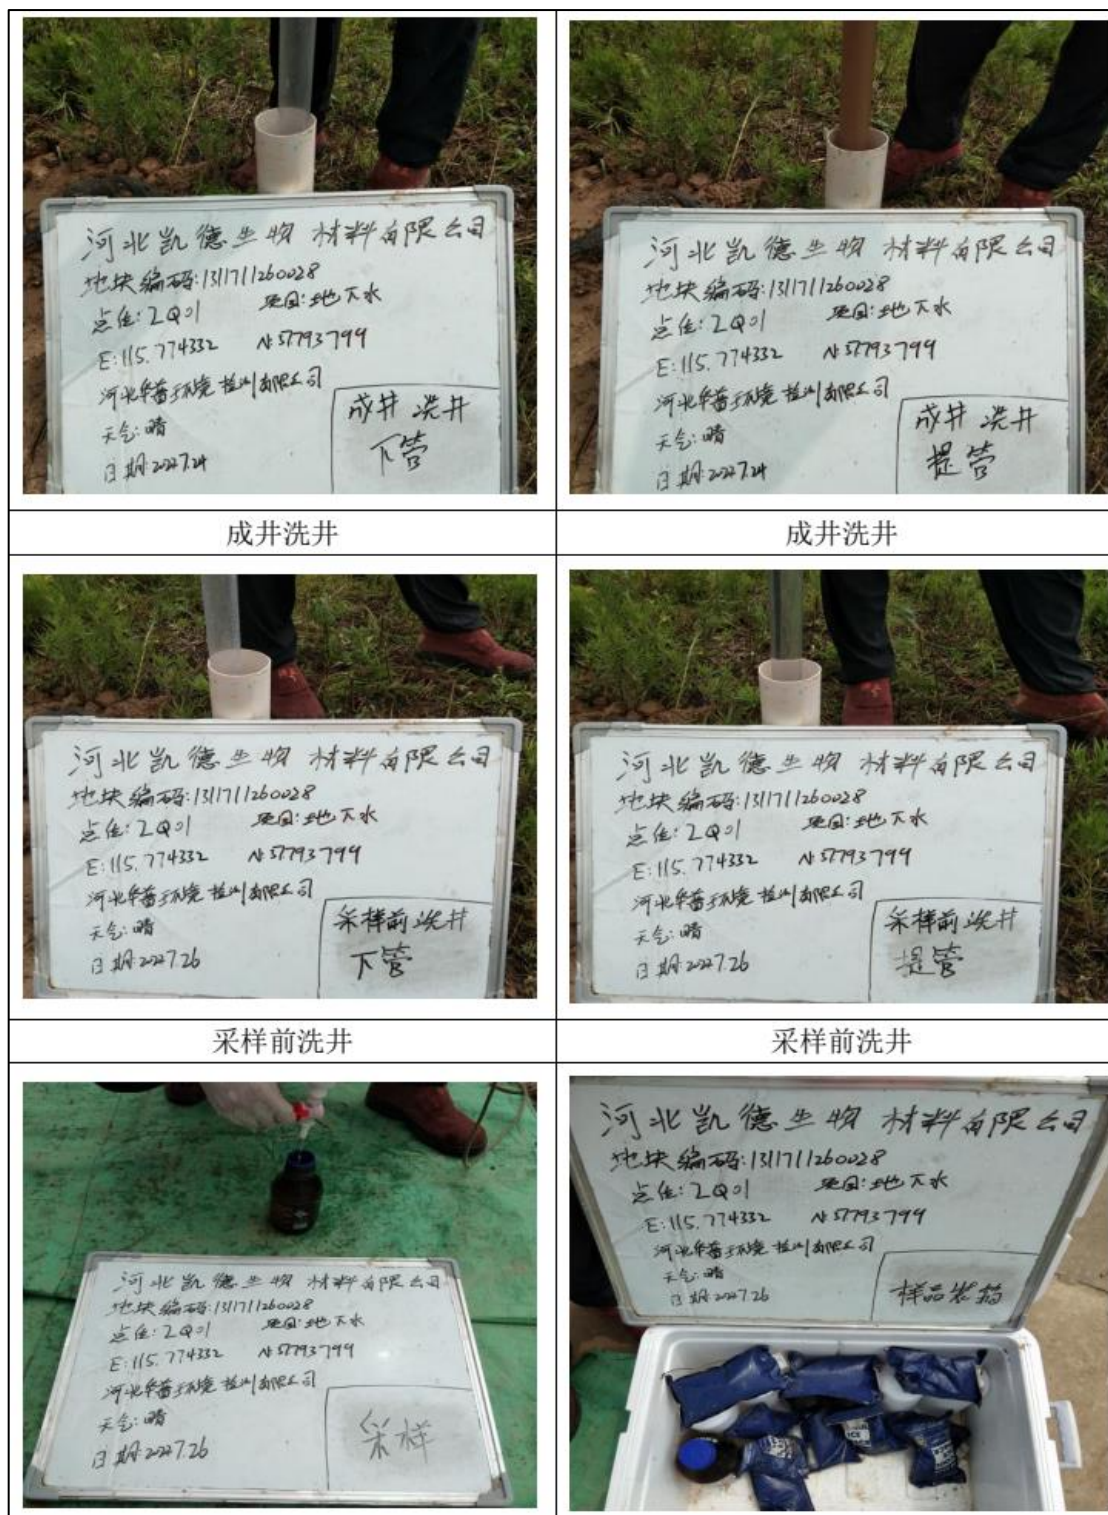 河北凯德生物材料有限公司
地块编码:1311711260028
点位:2Q01 项目:地下水
E:115.774332 N:37.793799
天气:晴
日期:2022.7.24
成井洗井
下管
河北凯德生物材料有限公司
地块编码:1311711260028
点位:2Q01 项目:地下水
E:115.774332 N:37.793799
天气:晴
日期:2022.7.24
成井洗井
提管
成井洗井
成井洗井
河北凯德生物材料有限公司
地块编码:1311711260028
点位:2Q01 项目:地下水
E:115.774332 N:37.793799
天气:晴
日期:2022.7.26
采样前洗井
下管
河北凯德生物材料有限公司
地块编码:1311711260028
点位:2Q01 项目:地下水
E:115.774332 N:37.793799
天气:晴
日期:2022.7.26
采样前洗井
提管
采样前洗井
采样前洗井
河北凯德生物材料有限公司
地块编码:1311711260028
点位:2Q01 项目:地下水
E:115.774332 N:37.793799
天气:晴
日期:2022.7.26
采样
河北凯德生物材料有限公司
地块编码:1311711260028
点位:2Q01 项目:地下水
E:115.774332 N:37.793799
天气:晴
日期:2022.7.26
样品装箱
ICE